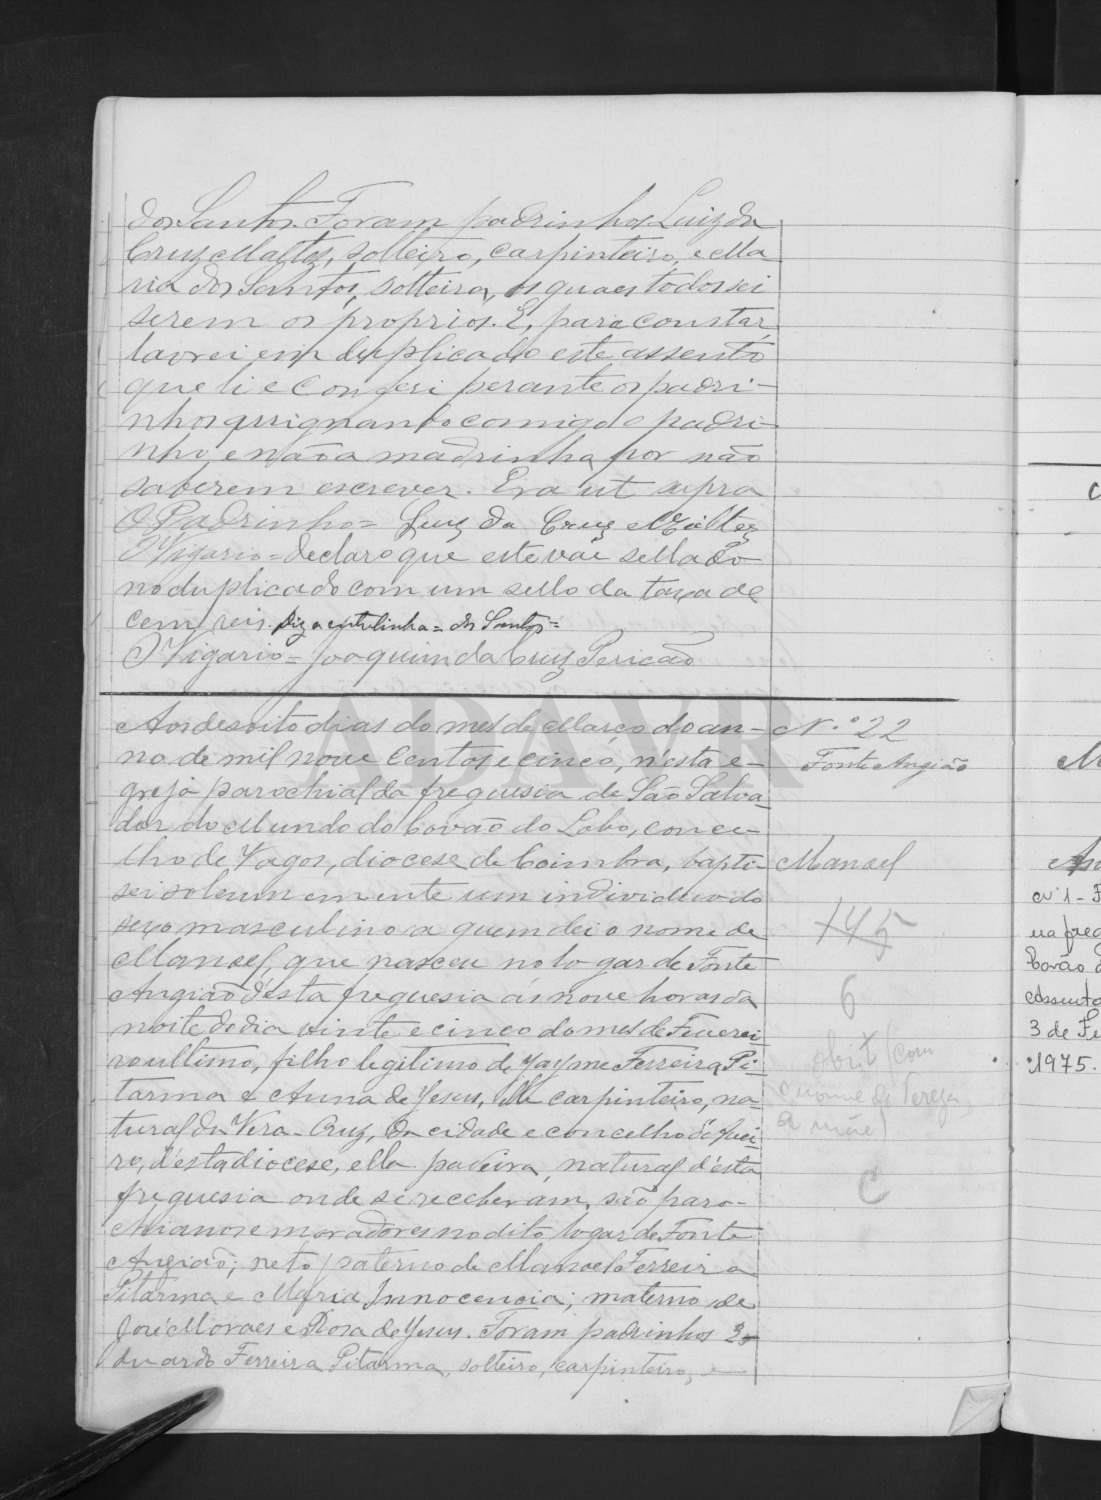 dos Santos. Foram padrinhos Luiz da
Cruz Maltez, solteiro, carpinteiro, e Ma
ria dos Santos, solteira, os quaes todos sei
serem os proprios. E, para constar,
lavrei em duplicado este assento
que li e conferi perante os padri-
nhos assignando comigo o padri-
nho, e não a madrinha por não
saberem escrever. Era ut supra
O Padrinho = Luiz da Cruz Maltez
O Vigario = declaro que este vae sellado
no duplicado com um sello da taxa de
cem reis. Diz a entrelinha = dos Santos =
O Vigario = Joaquim da Cruz Pericão
Aos desoito dias do mes de Março do an-
no de mil nove centos e cinco, n'esta e-
greja parochial da freguesia de São Salva-
dor do Mundo do Covão do Lobo, conce-
lho de Vagos, diocese de Coimbra, bapti-
sei solemnemente um individuo do
sexo masculino a quem dei o nome de
Manoel, que nasceu no logar de Fonte
Angião d'esta freguesia ás nove horas da
noite do dia vinte e cinco do mes de Feverei
ro ultimo, filho legitimo de Jayme Ferreira Pi-
tarma e Anna de Jesus, elle carpinteiro, na-
tural da Vera-Cruz, da cidade e concelho d'Avei-
ro, d'esta diocese, ella padeira, natural d'esta
freguesia onde se receberam, são paro-
chianos e moradores no dito logar de Fonte
Angião; neto paterno de Manoel Ferreira
Pitarma e Maria Innocencia; materno de
José Moraes e Rosa de Jesus. Foram padrinhos E-
duardo Ferreira Pitarma, solteiro, carpinteiro, e
N.º 22
Fonte Angião
Manoel
145
6
obito (com
o nome de Tereza
a mãe)
C
ADAVR
Nº 1 - F
na freg
Covão d
assento
3 de Fe
1975.